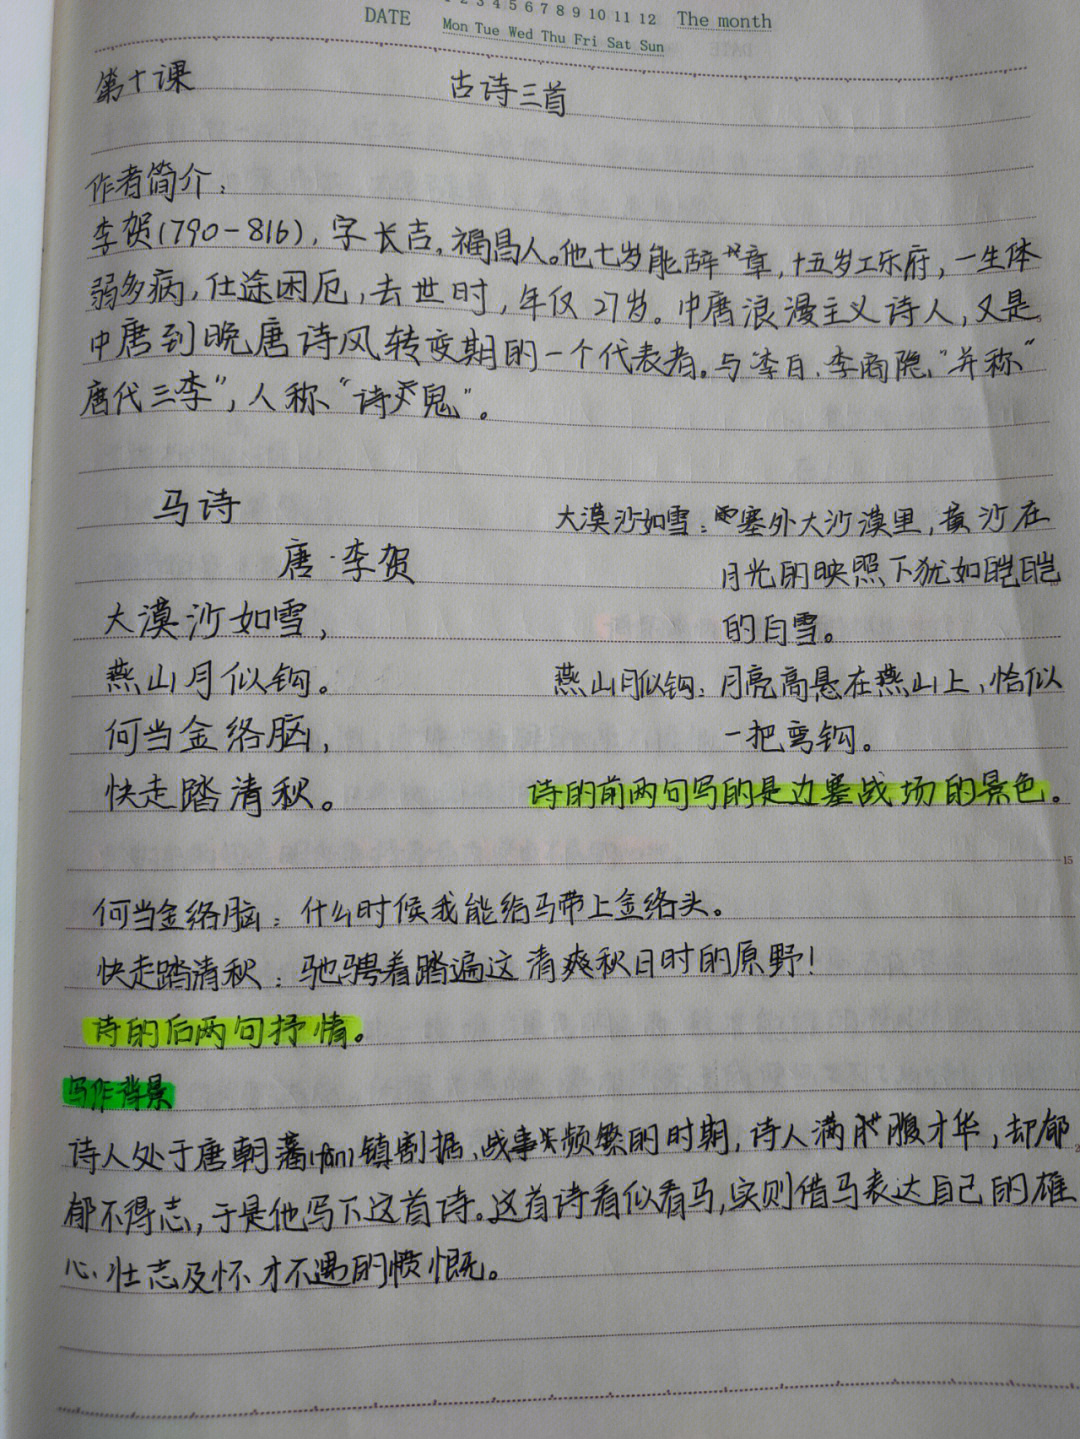 2 3 4 5 6 7 8 9 10 11 12 The month
DATE Mon Tue Wed Thu Fri Sat Sun
第十课 古诗三首
作者简介:
李贺(790-816),字长吉,福昌人。他七岁能辞章,十五岁工乐府,一生体
弱多病,仕途困厄,去世时,年仅27岁。中唐浪漫主义诗人,又是
中唐到晚唐诗风转变期的一个代表者。与李白、李商隐,"并称"
唐代三李",人称"诗鬼"。
马诗
唐·李贺
大漠沙如雪,
燕山月似钩。
何当金络脑,
快走踏清秋。
大漠沙如雪:塞外大沙漠里,黄沙在
月光的映照下犹如皑皑
的白雪。
燕山月似钩:月亮高悬在燕山上,恰似
一把弯钩。
诗的前两句写的是边塞战场的景色。
15
何当金络脑:什么时候我能给马带上金络头。
快走踏清秋:驰骋着踏遍这清爽秋日时的原野!
诗的后两句抒情。
写作背景
诗人处于唐朝藩(fān)镇割据、战事频繁的时期,诗人满腹才华,却郁
郁不得志,于是他写下这首诗。这首诗看似看马,实则借马表达自己的雄
心壮志及怀才不遇的愤慨。